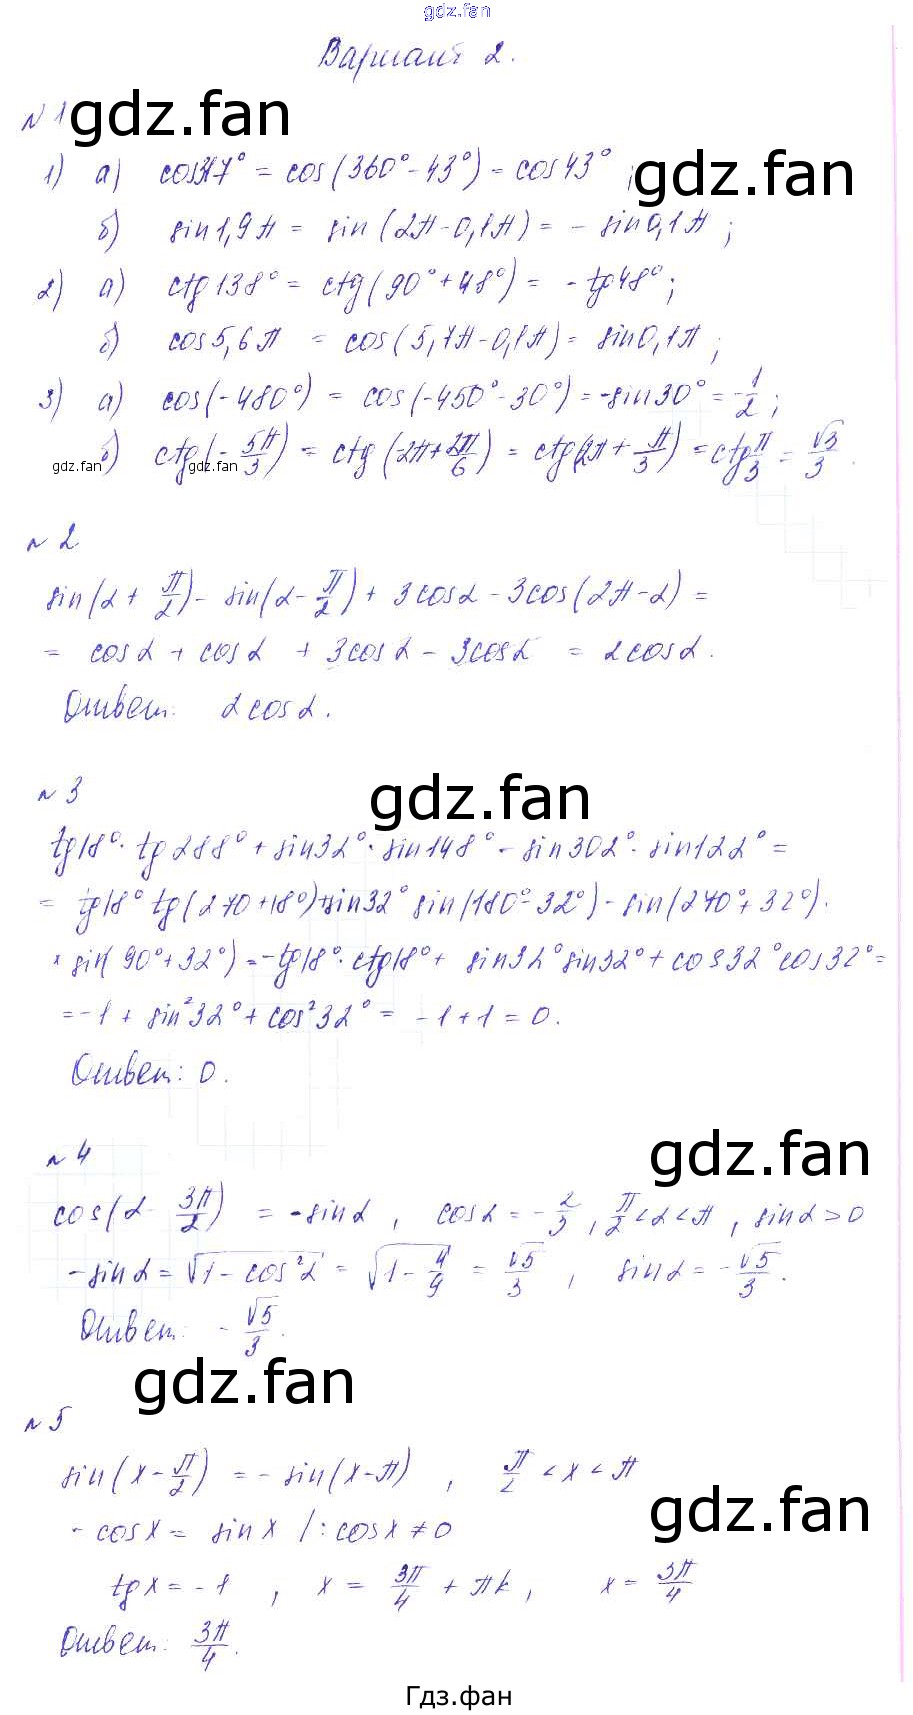 gdz.fan
Вариант 2.
№1
gdz.fan
1) а) cos317° = cos(360° - 43°) = cos43° ;
gdz.fan
б) sin1,9π = sin(2π - 0,1π) = - sin0,1π ;
2) а) ctg138° = ctg(90° + 48°) = - tg48° ;
б) cos5,6π = cos(5,7π - 0,1π) = sin0,1π ;
3) а) cos(-480°) = cos(-450° - 30°) = -sin30° = -1/2 ;
б) ctg(-5π/3) = ctg(-2π + 2π/6) = ctg(2π + π/3) = ctg π/3 = √3/3 .
gdz.fan gdz.fan gdz.fan gdz.fan
№ 2
sin(α + π/2) - sin(α - π/2) + 3cosα - 3cos(2π - α) =
= cosα + cosα + 3cosα - 3cosα = 2cosα .
Ответ: 2cosα .
№ 3
gdz.fan
tg18° · tg288° + sin32° · sin148° - sin302° · sin122° =
= tg18° tg(270 + 18°) + sin32° sin(180° - 32°) - sin(270° + 32°) ·
× sin(90° + 32°) = -tg18° · ctg18° + sin32° sin32° + cos32° cos32° =
= -1 + sin²32° + cos²32° = -1 + 1 = 0 .
Ответ: 0 .
№ 4
gdz.fan
cos(α - 3π/2) = -sinα , cosα = -2/3 , π/2 < α < π , sinα > 0
-sinα = √(1 - cos²α) = √(1 - 4/9) = √5/3 , sinα = -√5/3 .
Ответ: -√5/3 .
gdz.fan
№ 5
sin(x - π/2) = - sin(x - π) , π/2 < x < π
gdz.fan
- cosx = sinx /: cosx ≠ 0
tgx = -1 , x = 3π/4 + πk , x = 3π/4
Ответ: 3π/4 .
Гдз.фан